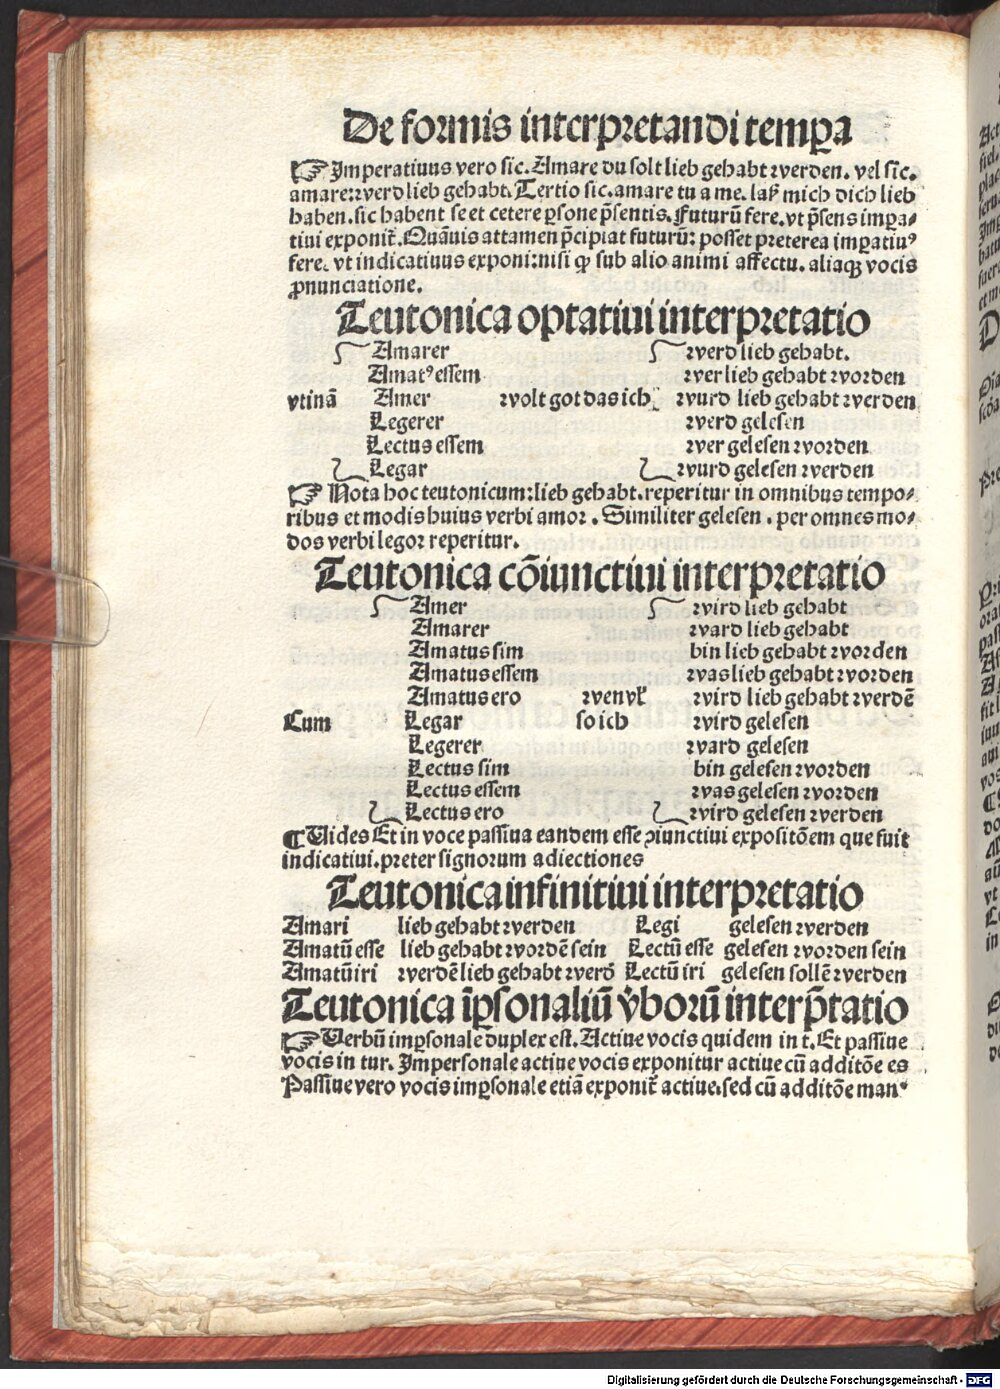 De formis interpretandi temꝑa
☞Imperatiuus vero sic. Amare du solt lieb gehabt werden. vel sic.
amare: werd lieb gehabt. Tertio sic. amare tu a me. laß mich dich lieb
haben. sic habent se et cetere ꝑsone p̄sentis. Futurū fere. vt p̄sens impa/
tiui exponit᷑. Quāuis attamen p̄cipiat futurū: posset preterea imꝑatiuꝰ
fere. vt indicatiuus exponi: nisi ꝙ sub alio animi affectu. aliaqꝫ vocis
ꝓnunciatione.
Teutonica optatiui interpretatio
Amarer werd lieb gehabt.
Amatꝰ essem wer lieb gehabt worden
vtinā Amer wolt got das ich wurd lieb gehabt werden
Legerer werd gelesen
Lectus essem wer gelesen worden
Legar wurd gelesen werden
☞ Nota hoc teutonicum: lieb gehabt. reperitur in omnibus tempo/
ribus et modis huius verbi amor. Similiter gelesen. per omnes mo/
dos verbi legor reperitur.
Teutonica cōiunctiui interpretatio
Amer wird lieb gehabt
Amarer ward lieb gehabt
Amatus sim bin lieb gehabt worden
Amatus essem was lieb gehabt worden
Amatus ero wenn wird lieb gehabt werdē
Cum Legar so ich wird gelesen
Legerer ward gelesen
Lectus sim bin gelesen worden
Lectus essem was gelesen worden
Lectus ero wird gelesen werden
¶ Uides Et in voce passiua eandem esse ꝯiunctiui expositōem que fuit
indicatiui. preter signorum adiectiones
Teutonica infinitiui interpretatio
Amari lieb gehabt werden Legi gelesen werden
Amatū esse lieb gehabt wordē sein Lectū esse gelesen worden sein
Amatū iri werdē lieb gehabt werd Lectū iri gelesen sollē werden
Teutonica īꝑsonaliū v̾borū interp̄tatio
☞Uerbū imꝑsonale duplex est. Actiue vocis quidem in t. Et passiue
vocis in tur. Impersonale actiue vocis exponitur actiue cū additōe es
Passiue vero vocis imꝑsonale etiā exponit᷑ actiue. sed cū additōe man
Digitalisierung gefördert durch die Deutsche Forschungsgemeinschaft - DFG